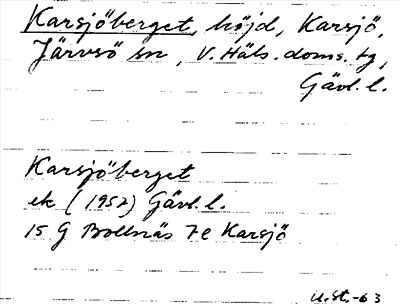 Karsjöberget, höjd, Karsjö,
Järvsö sn, V. Häls. doms. tg,
Gävl. l.
Karsjöberget
ek (1957) Gävl. l.
15 G Bollnäs 7e Karsjö
U.St.-63